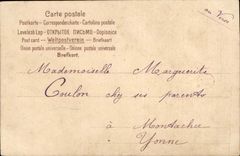 Carte postale
Postkarte - Correspondenzkarte - Cartolina postale
Levelező Lap - ОТКРЫТОЕ ПИСЬМО - Dopisnice
Post card — Weltpostverein — Briefkaart
Union postale universelle - Unione postale universale
Brefkort.
au Verso
Mademoiselle Marguerite
Coulon chez ses parents
à Montacher
Yonne